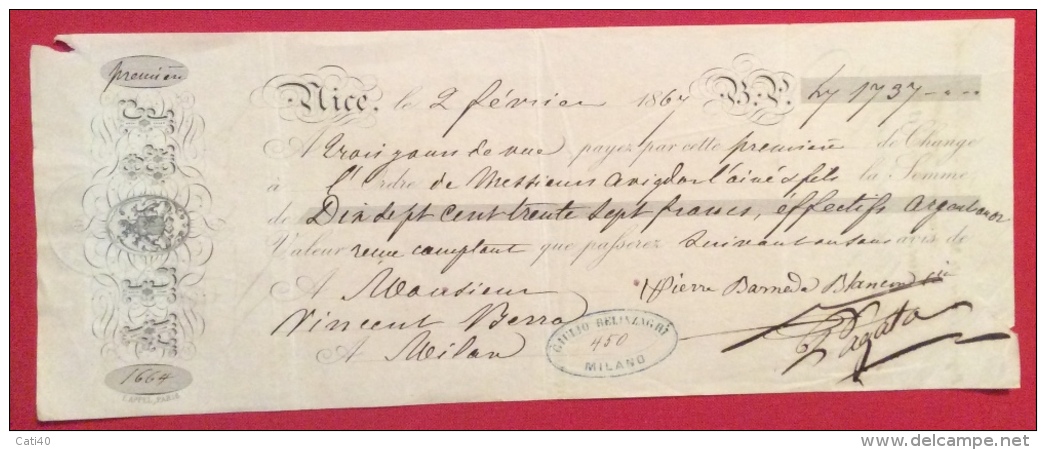 première
1664
F. APPEL, PARIS
Nice, le 2 février 1867 B.P. 1737
A trois jours de vue payez par cette première de Change
à l'Ordre de Messieurs Avigdor l'ainé & fils la Somme
de Dix sept cent trente sept francs, effectifs argent ou or
Valeur reçue comptant que passerez Suivant ou sans avis de
A Monsieur
Vincent Berra
A Milan
Pierre Barnaeda Blancard
GIULIO BELINZAGHI
450
MILANO
Cati40
http://www.delcampe.net